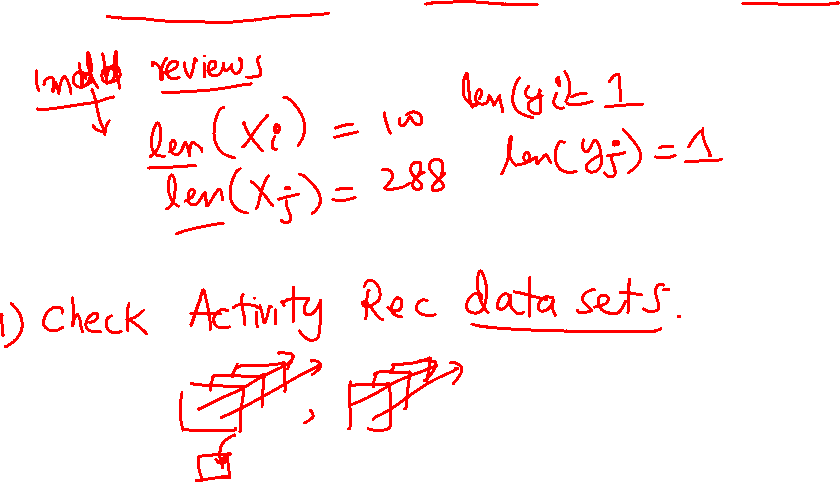 imdb reviews
len(Xi) = 100 len(yi) = 1
len(Xj) = 288 len(yj) = 1
1) Check Activity Rec data sets.